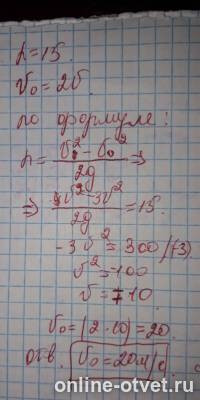 h=15.
v₀=2v
по формуле:
h=(v²-v₀²)/2g ⇒
⇒ (v²-4v²)/2g=15.
-3v²=300/(-3)
v²=100
v=∓10
v₀=|2·10|=20
отв. v₀=20м/с
online-otvet.ru